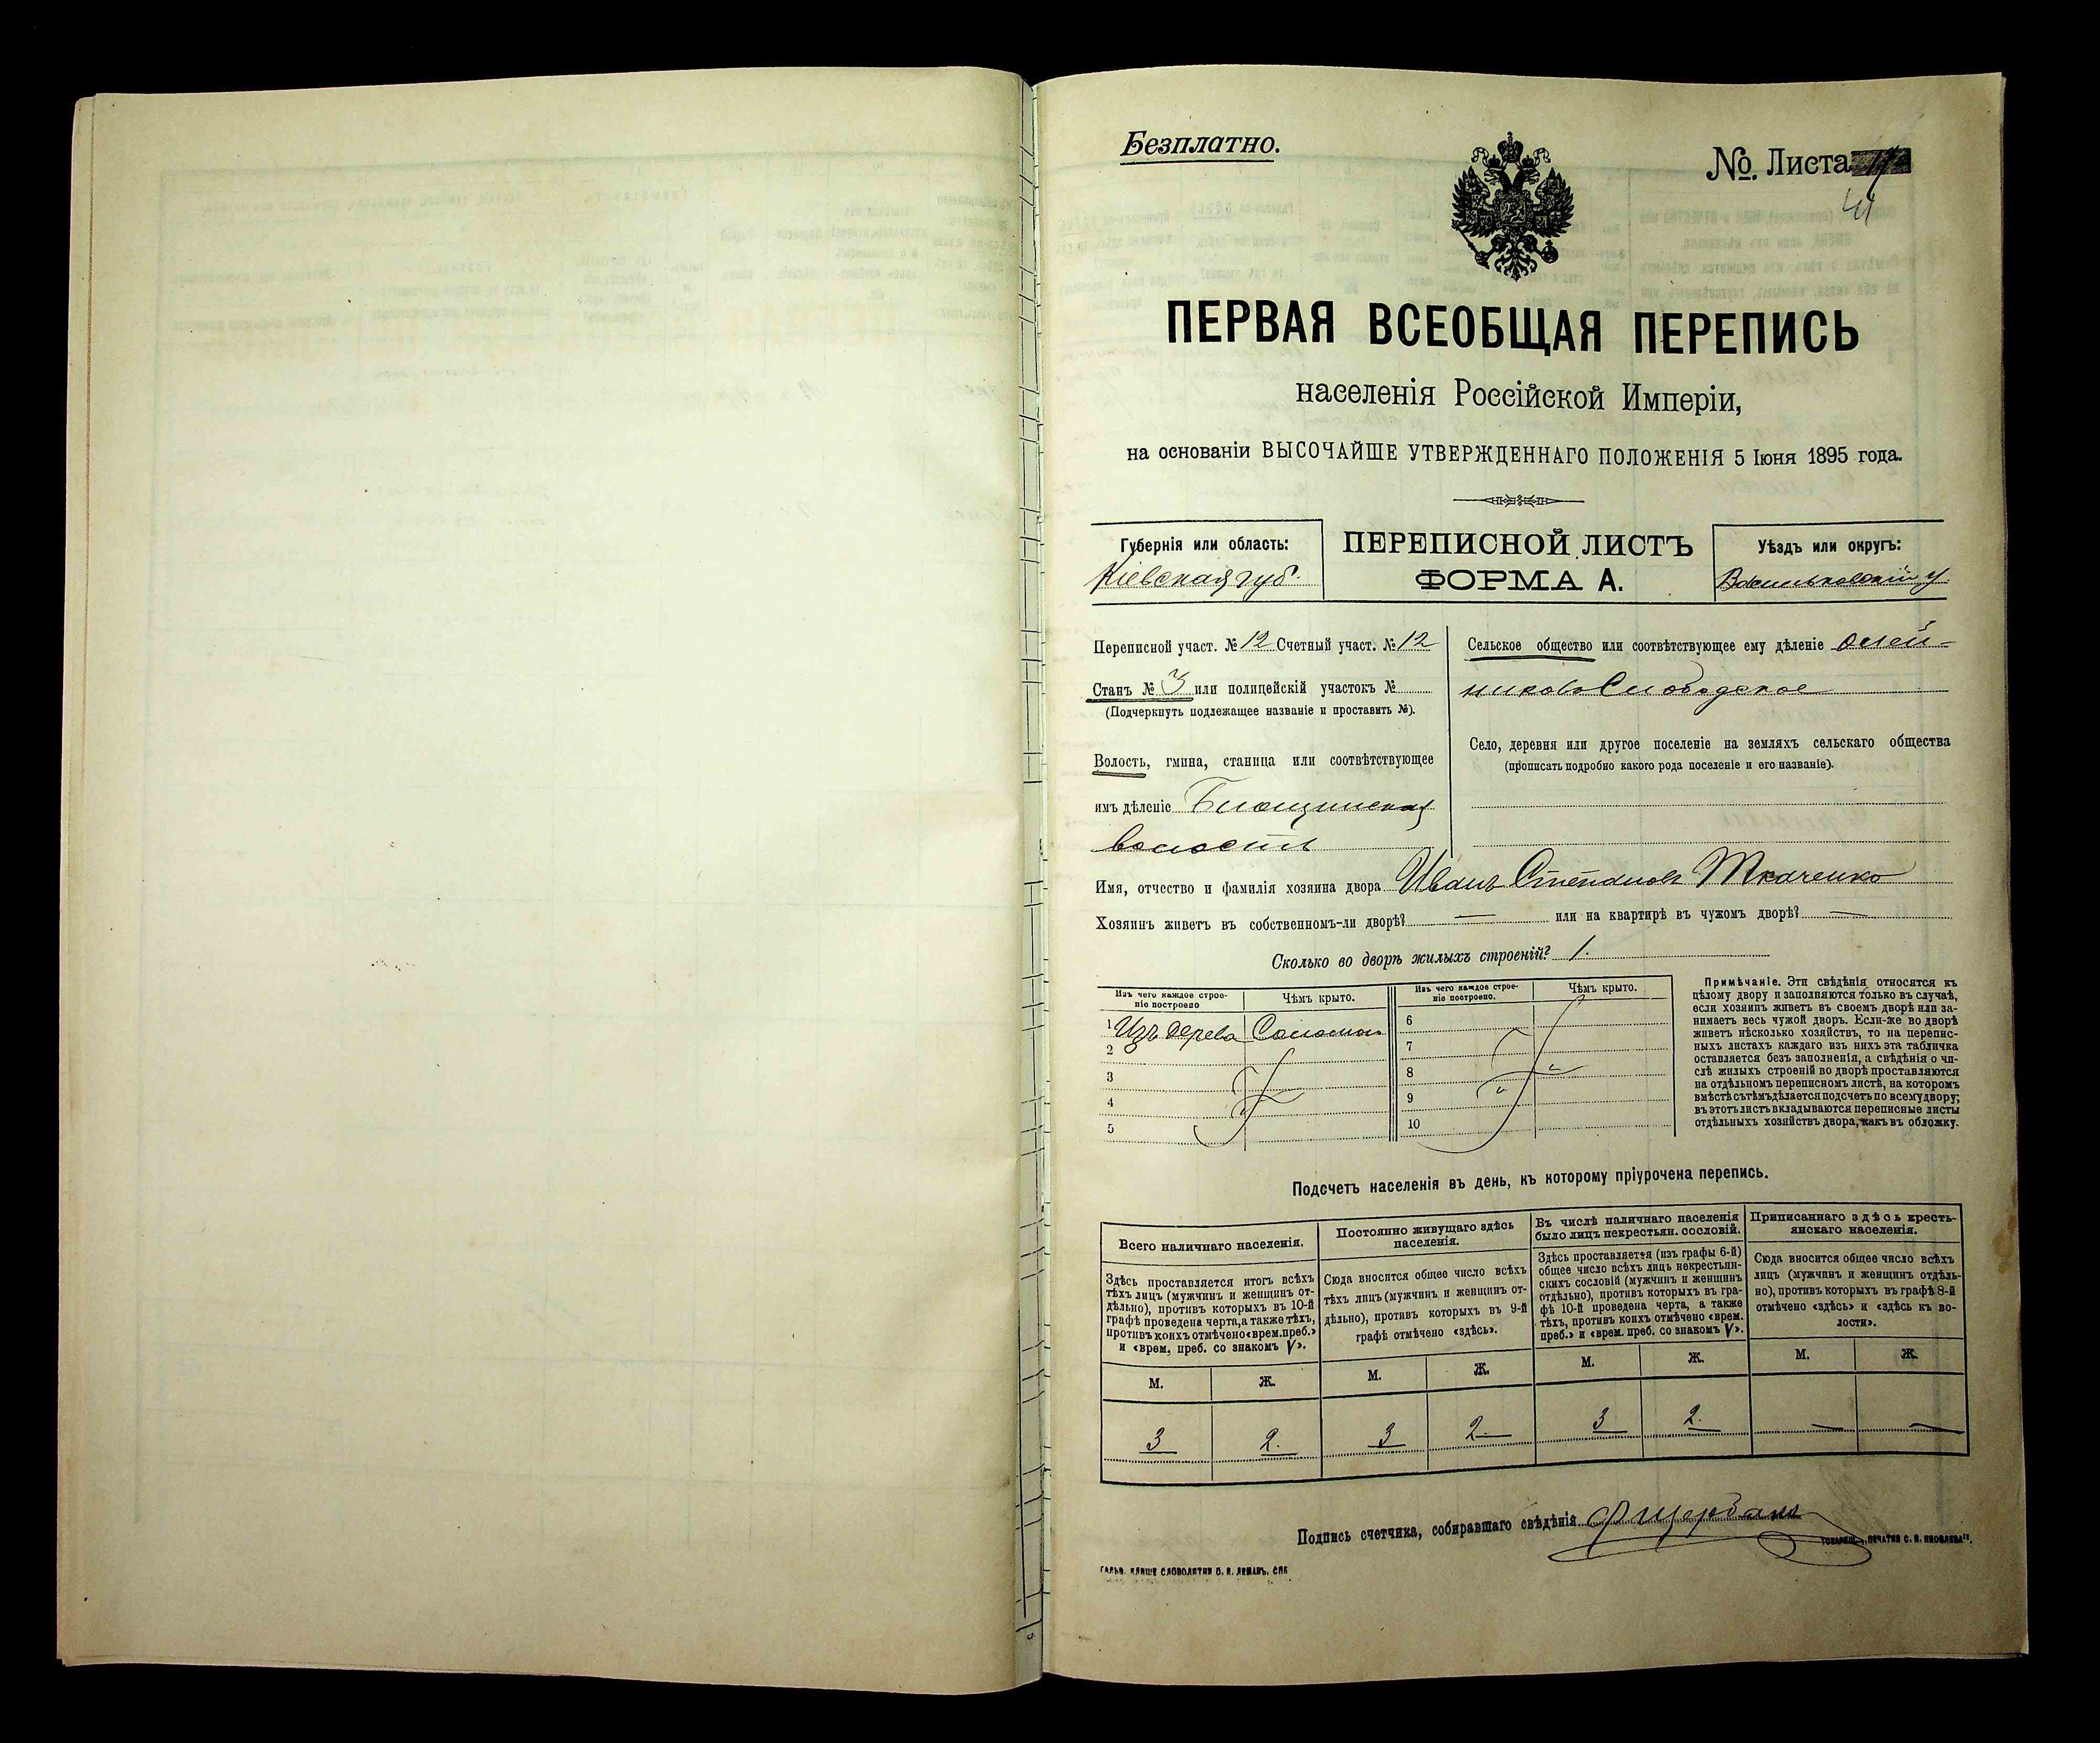 Безплатно.
№. Листа
41
ПЕРВАЯ ВСЕОБЩАЯ ПЕРЕПИСЬ
населенія Россійской Имперіи,
на основаніи ВЫСОЧАЙШЕ УТВЕРЖДЕННАГО ПОЛОЖЕНІЯ 5 Іюня 1895 года.
Губернія или область:
Кіевская губ.
ПЕРЕПИСНОЙ ЛИСТЪ
ФОРМА А.
Уѣздъ или округъ:
Васильковскій у.
Переписной участ. № 12 Счетный участ. № 12
Станъ № 3 или полицейскій участокъ №
(Подчеркнуть подлежащее названіе и проставить №).
Волость, гмина, станица или соотвѣтствующее
имъ дѣленіе Блощинская
волость
Сельское общество или соотвѣтствующее ему дѣленіе Олей-
никово Слободское
Село, деревня или другое поселеніе на земляхъ сельскаго общества
(прописать подробно какого рода поселеніе и его названіе).
Имя, отчество и фамилія хозяина двора Иванъ Степановъ Ткаченко
Хозяинъ живетъ въ собственномъ-ли дворѣ? — или на квартирѣ въ чужомъ дворѣ? —
Сколько во дворѣ жилыхъ строеній? 1.
Изъ чего каждое строе-
ніе построено
Чѣмъ крыто.
1 Изъ дерева Соломою
2
3
4
5
Изъ чего каждое строе-
ніе построено.
Чѣмъ крыто.
6
7
8
9
10
Примѣчаніе. Эти свѣдѣнія относятся къ
цѣлому двору и заполняются только въ случаѣ,
если хозяинъ живетъ въ своемъ дворѣ или за-
нимаетъ весь чужой дворъ. Если-же во дворѣ
живетъ нѣсколько хозяйствъ, то на перепис-
ныхъ листахъ каждаго изъ нихъ эта табличка
оставляется безъ заполненія, а свѣдѣнія о чи-
слѣ жилыхъ строеній во дворѣ проставляются
на отдѣльномъ переписномъ листѣ, на которомъ
вмѣстѣ съ тѣмъ дѣлается подсчетъ по всему двору;
въ этотъ листъ вкладываются переписные листы
отдѣльныхъ хозяйствъ двора, какъ въ обложку.
Подсчетъ населенія въ день, къ которому пріурочена перепись.
Всего наличнаго населенія.
Здѣсь проставляется итогъ всѣхъ
тѣхъ лицъ (мужчинъ и женщинъ от-
дѣльно), противъ которыхъ въ 10-й
графѣ проведена черта, а также тѣхъ,
противъ коихъ отмѣчено «врем. преб.»
и «врем. преб. со знакомъ V».
М. Ж.
3 2.
Постоянно живущаго здѣсь
населенія.
Сюда вносится общее число всѣхъ
тѣхъ лицъ (мужчинъ и женщинъ от-
дѣльно), противъ которыхъ въ 9-й
графѣ отмѣчено «здѣсь».
М. Ж.
3 2.
Въ числѣ наличнаго населенія
было лицъ некрестьян. сословій.
Здѣсь проставляется (изъ графы 6-й)
общее число всѣхъ лицъ некрестьян-
скихъ сословій (мужчинъ и женщинъ
отдѣльно), противъ которыхъ въ гра-
фѣ 10-й проведена черта, а также
тѣхъ, противъ коихъ отмѣчено «врем.
преб.» и «врем. преб. со знакомъ V».
М. Ж.
3 2.
Приписаннаго здѣсь кресть-
янскаго населенія.
Сюда вносится общее число всѣхъ
лицъ (мужчинъ и женщинъ отдѣль-
но), противъ которыхъ въ графѣ 8-й
отмѣчено «здѣсь» и «здѣсь къ во-
лости».
М. Ж.
— —
Подпись счетчика, собиравшаго свѣдѣнія Щербакъ
ТОВАРИЩ. „ПЕЧАТНЯ С. П. ЯКОВЛЕВА".
ГАЛЬВ. КЛИШЕ СЛОВОЛИТНИ О. И. ЛЕМАНЪ, СПБ